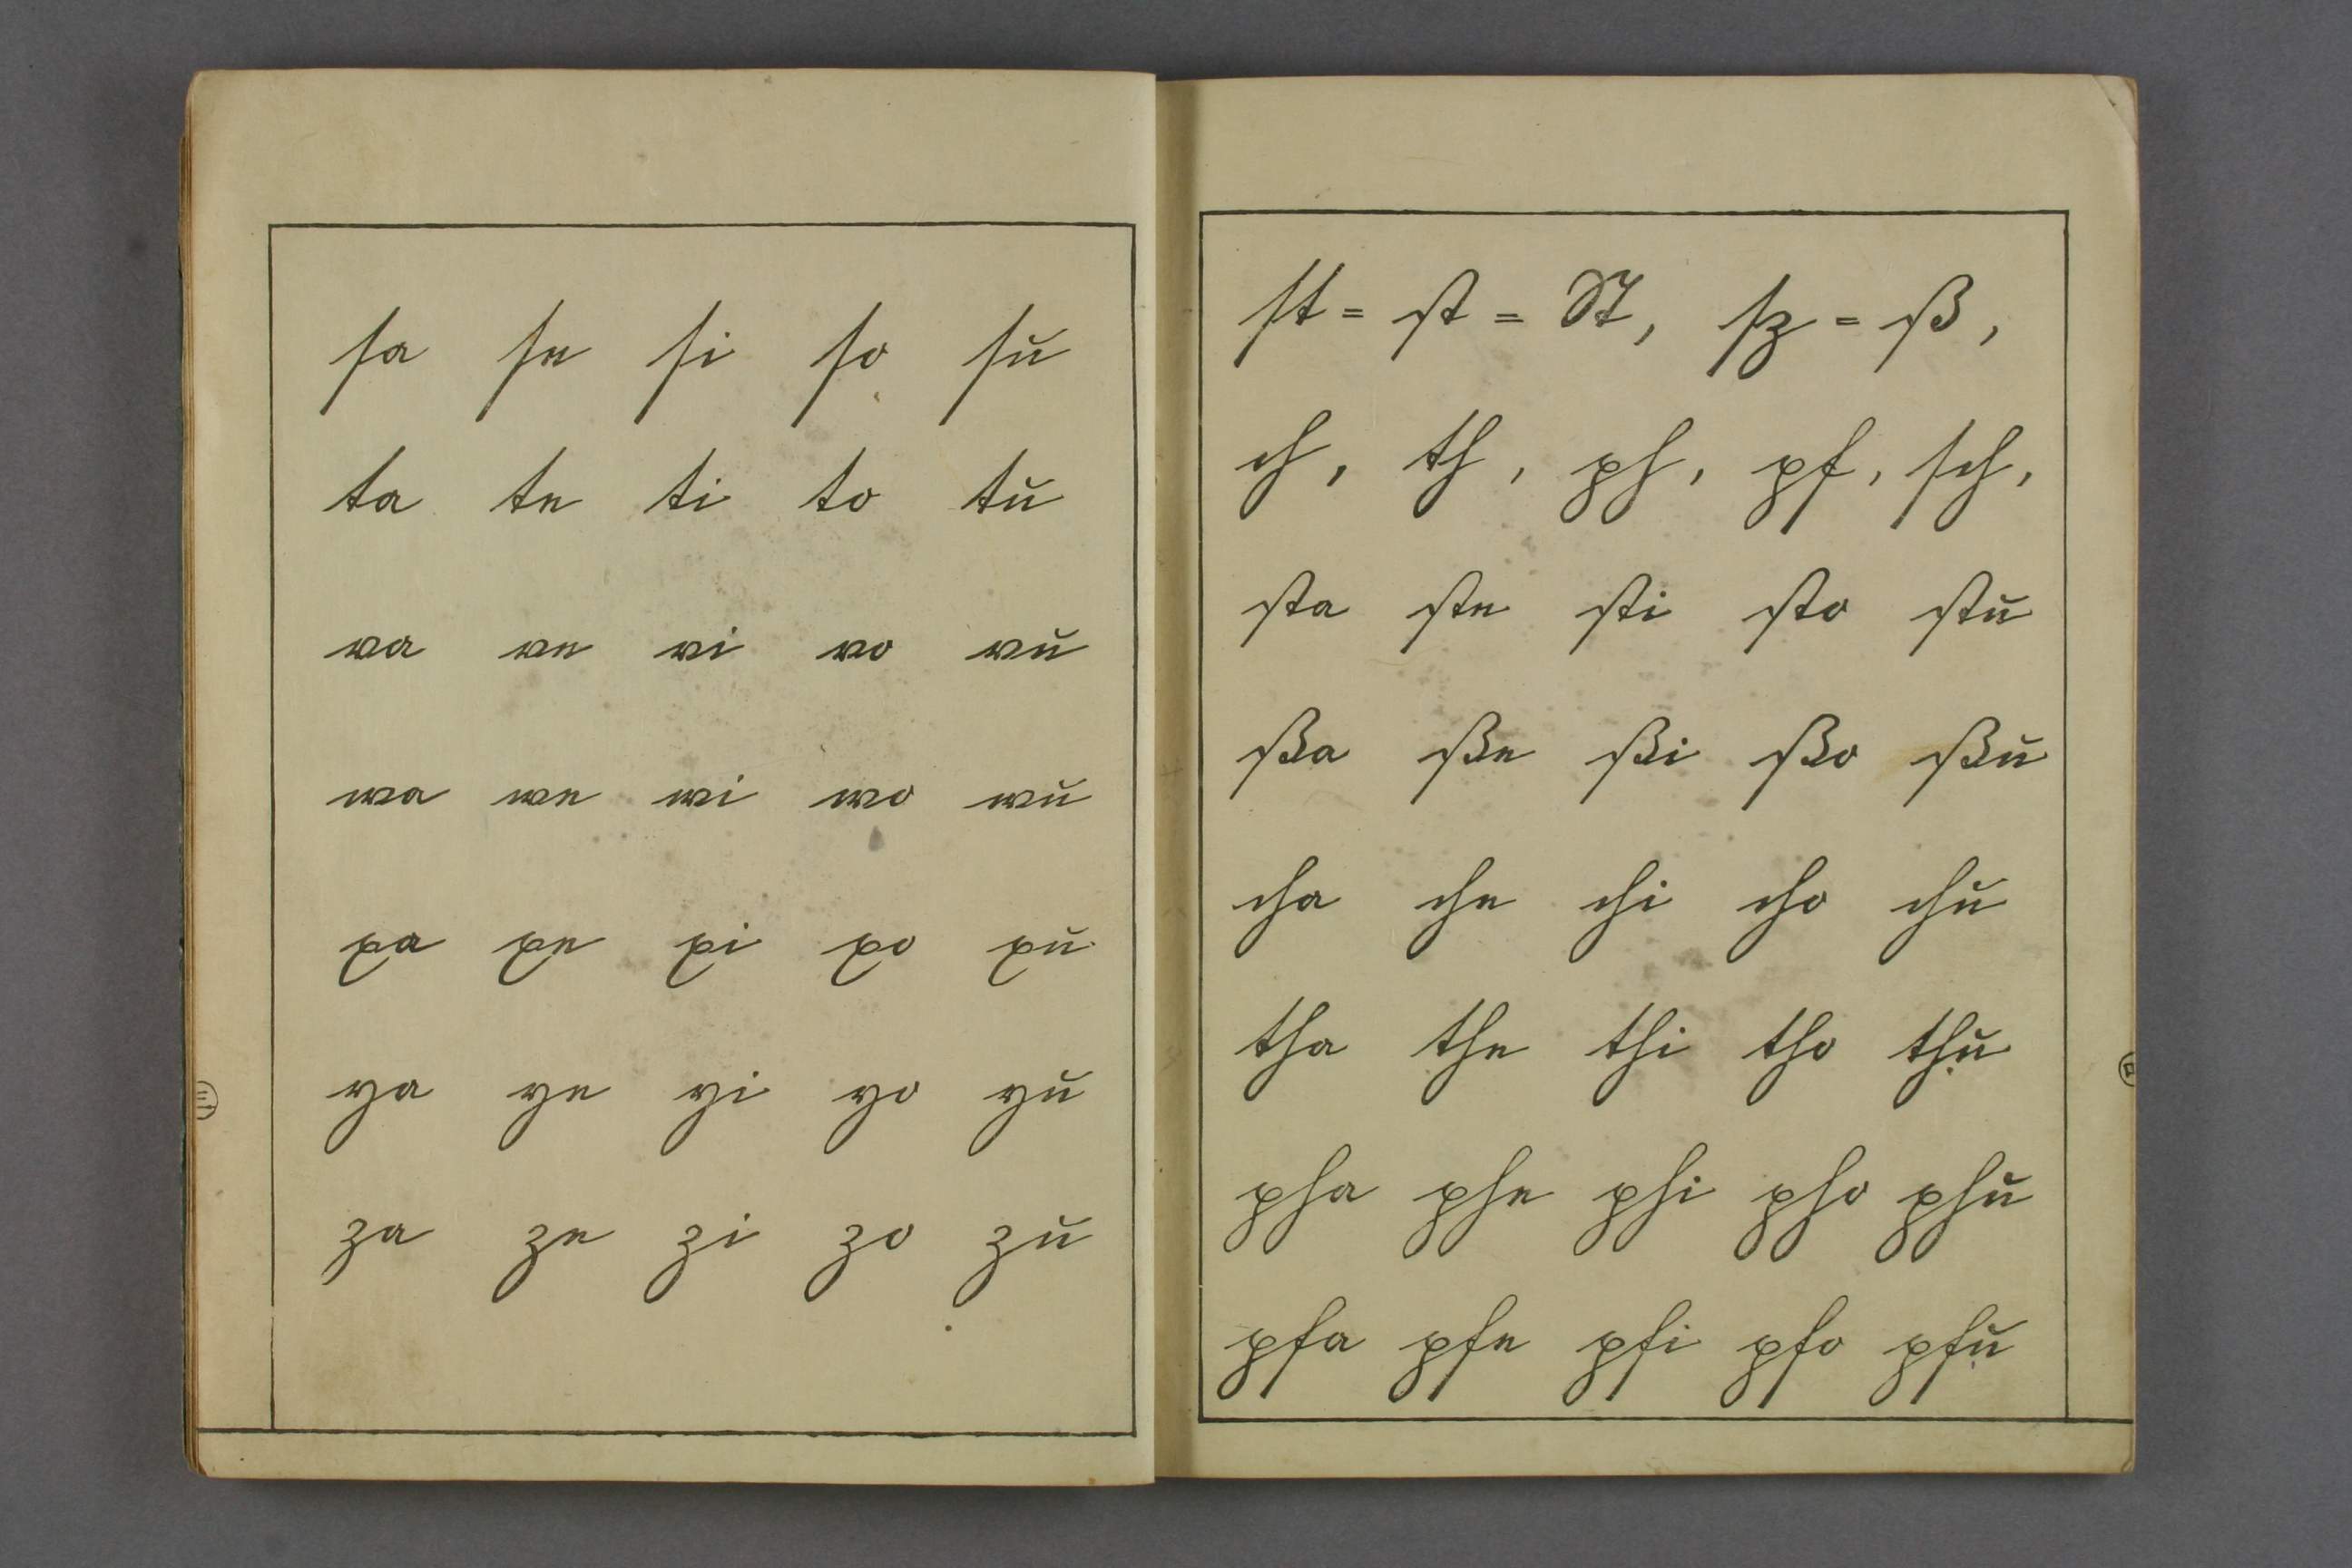 ſa ſe ſi ſo ſu
ta te ti to tu
va ve vi vo vu
wa we wi wo wu
xa xe xi xo xu
ya ye yi yo yu
za ze zi zo zu
ſt = ſt = St, ſz = ß,
ch, th, ph, pf, ſch,
ſta ſte ſti ſto ſtu
ßa ße ßi ßo ßu
cha che chi cho chu
tha the thi tho thu
pha phe phi pho phu
pfa pfe pfi pfo pfu